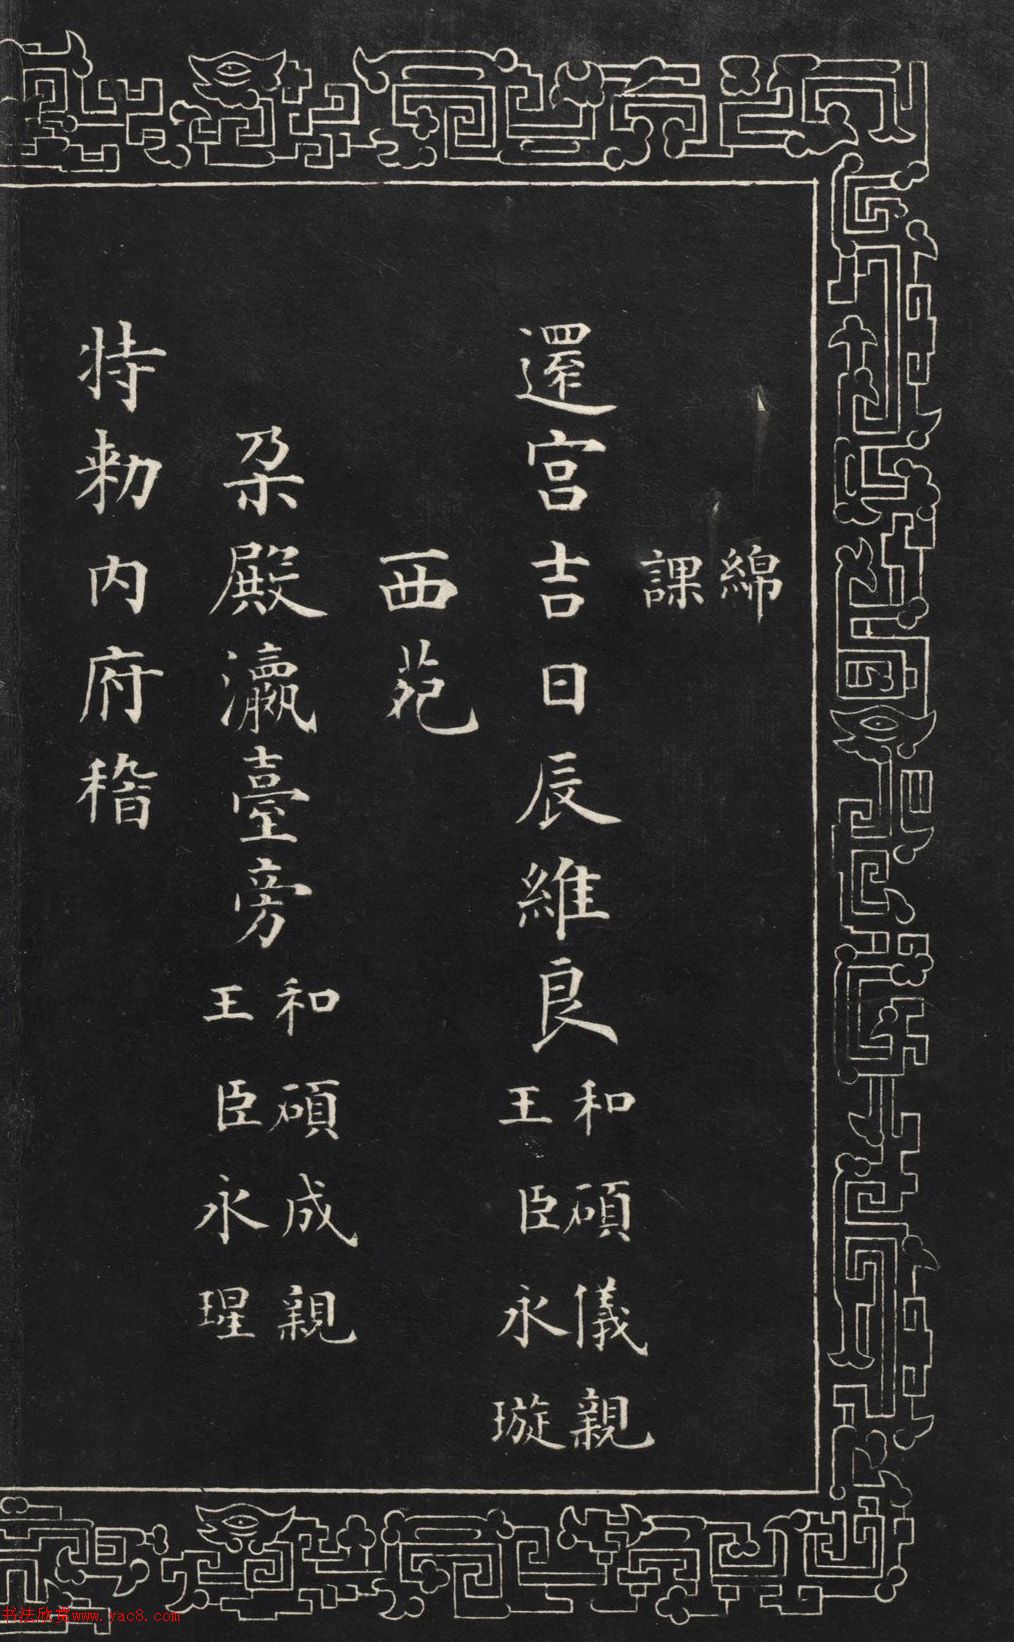 綿
課
還宫吉日辰維良
和碩儀親
王臣永璇
西苑
朶殿瀛臺旁
和碩成親
王臣永瑆
特勅内府稽
书法欣赏www.yac8.com